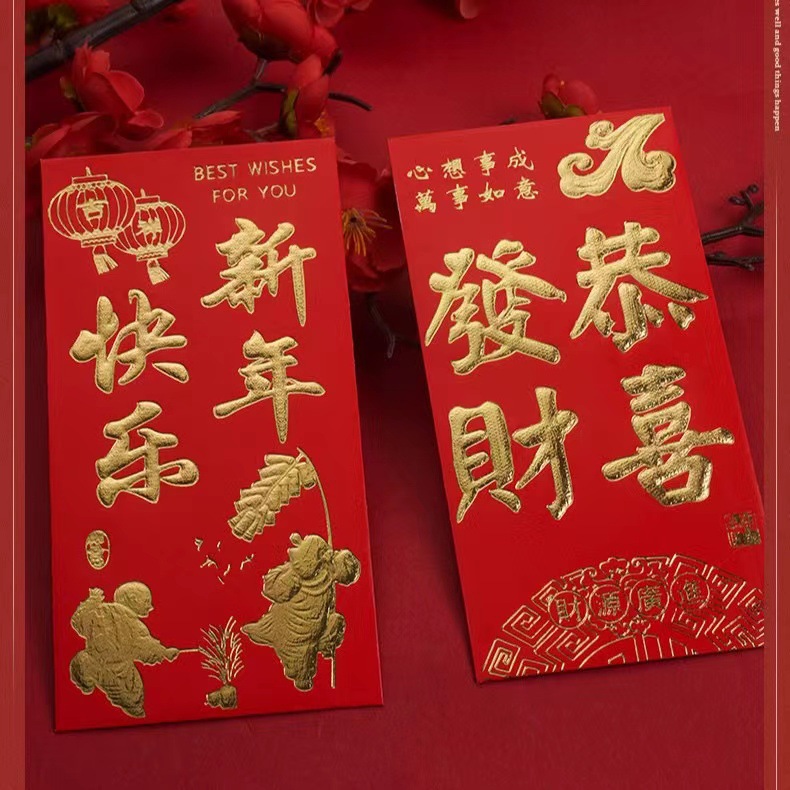 es well and good things happen
BEST WISHES
FOR YOU
吉
新年
快乐
心想事成
萬事如意
恭喜
發財
財源廣進